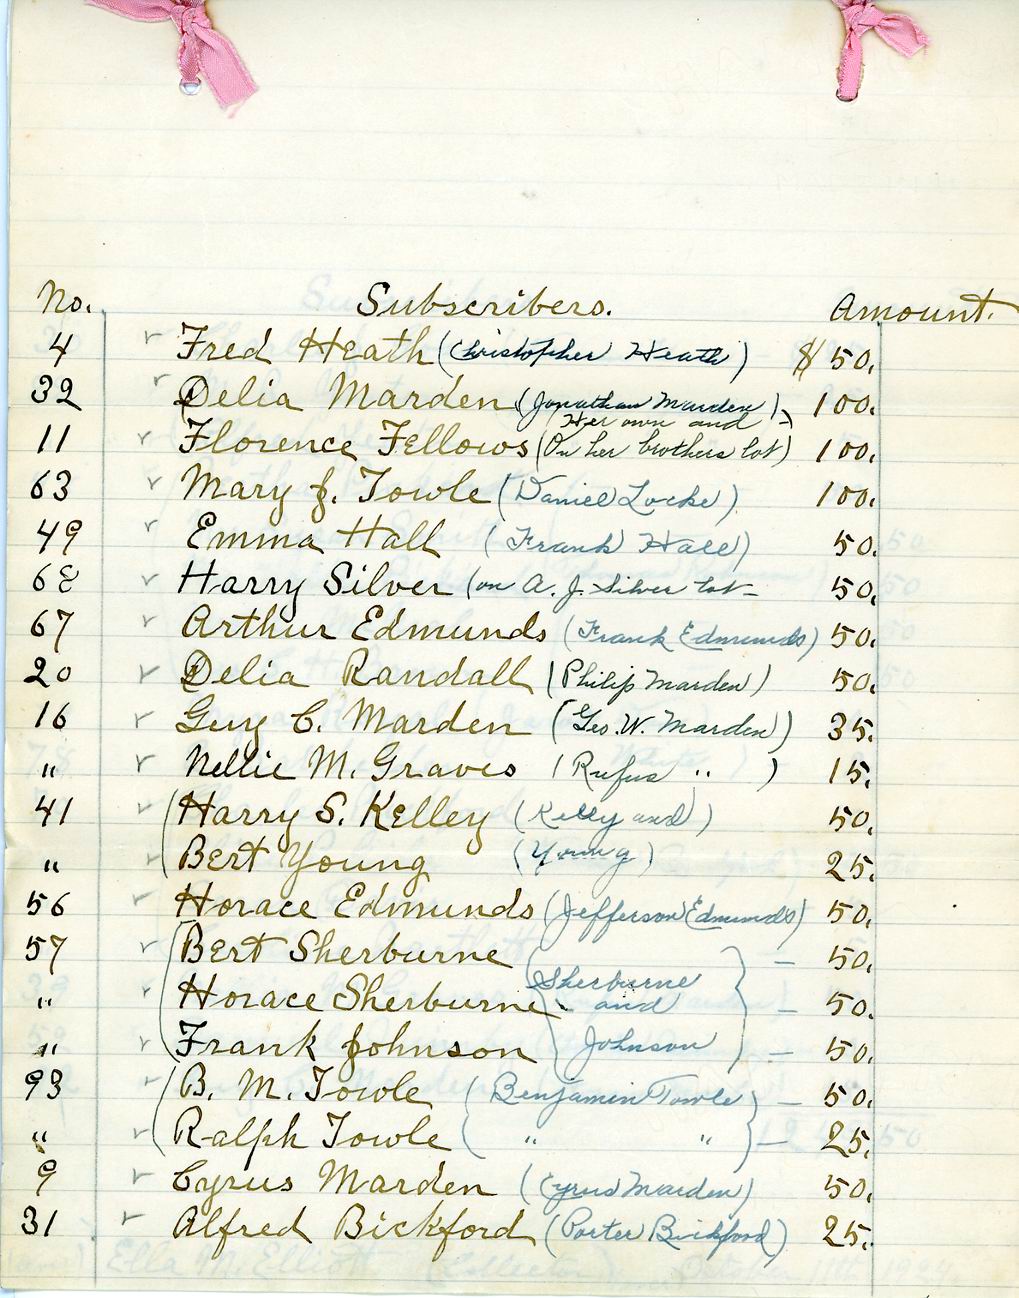 No. Subscribers. Amount.
4 Fred Heath (Christopher Heath) $ 50.
32 Delia Marden (Jonathan Marden) 100.
Her own and
11 Florence Fellows (On her brothers lot) 100.
63 Mary J. Towle (Daniel Locke) 100.
49 Emma Hall (Frank Hall) 50.
68 Harry Silver (on A. J. Silver lot- 50.
67 Arthur Edmunds (Frank Edmunds) 50.
20 Delia Randall (Philip Marden) 50.
16 Guy C. Marden (Geo. W. Marden) 35.
" Nellie M. Graves (Rufus " ) 15.
41 Harry S. Kelley (Kelley and) 50.
" Bert Young (Young) 25.
56 Horace Edmunds (Jefferson Edmunds) 50.
57 Bert Sherburne – 50.
Sherburne
" Horace Sherburne and – 50.
" Frank Johnson Johnson – 50.
93 B. M. Towle (Benjamin Towle – 50.
" Ralph Towle " " – 25.
9 Cyrus Marden (Cyrus Marden) 50.
31 Alfred Bickford (Porter Bickford) 25.